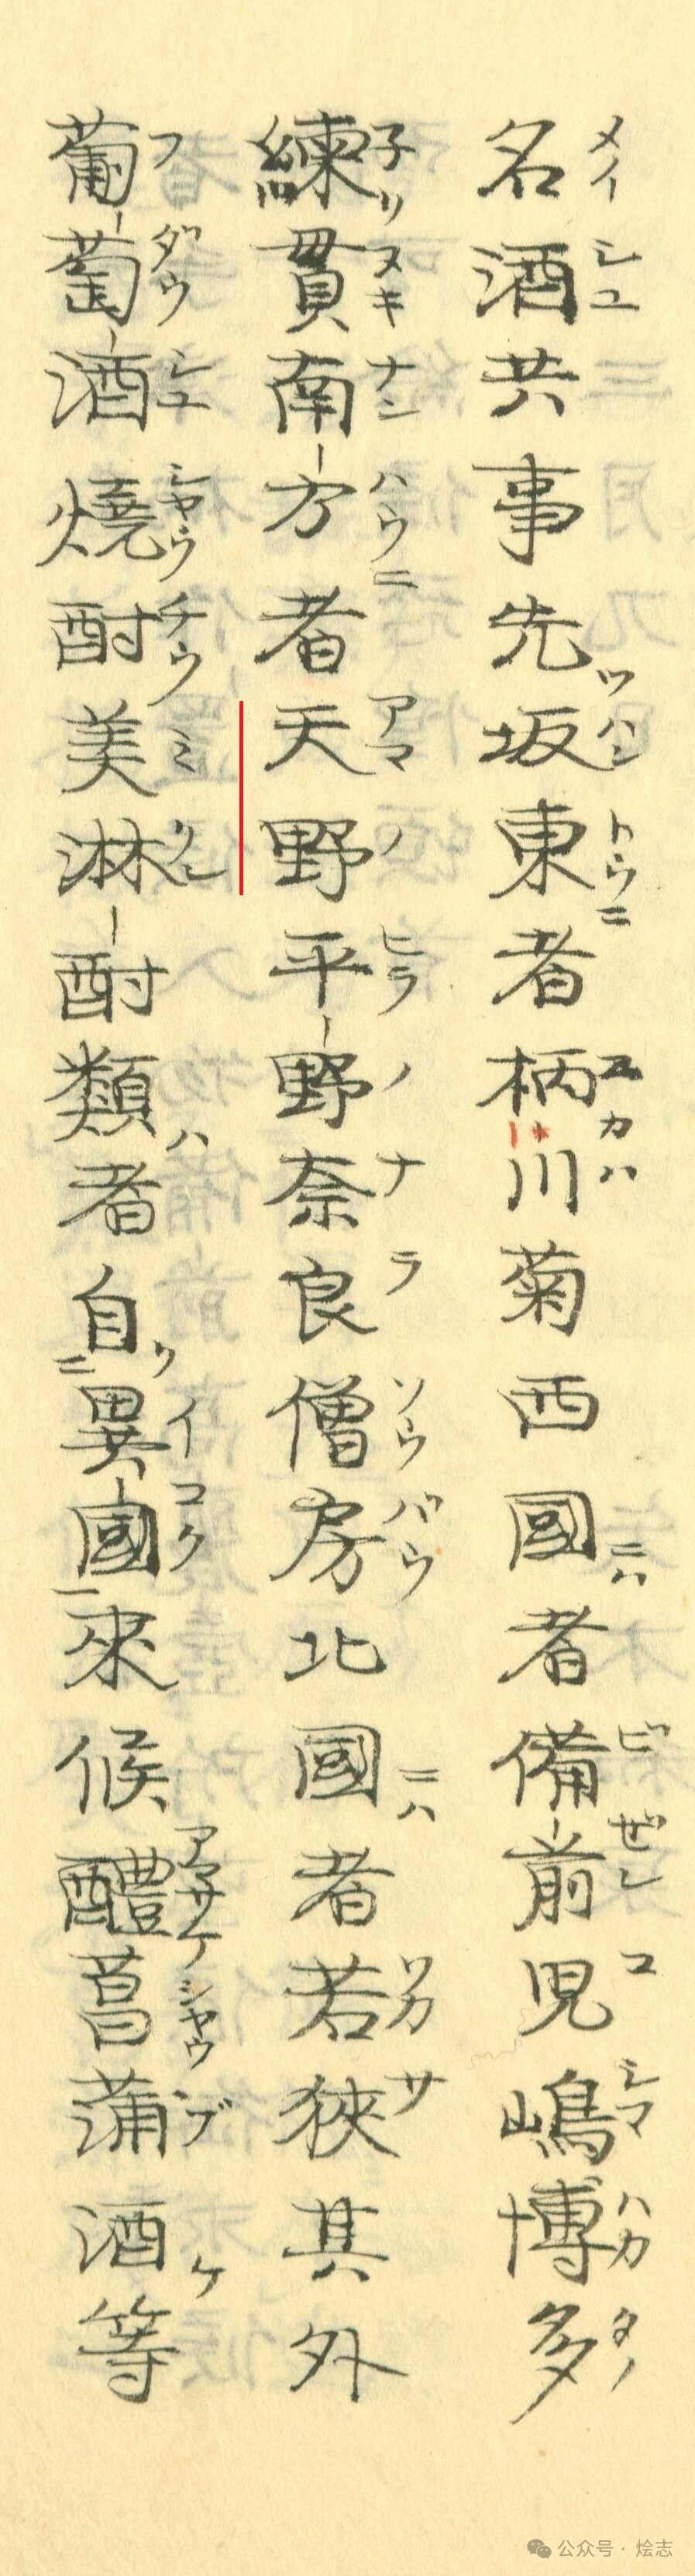 名酒共事先坂東者柄川菊西國者備前児嶋博多
メイシユ ツハントウニ エカハ ニハ ビぜン コシマハカタノ
練貫南方者天野平野奈良僧房北國者若狹其外
子リヌキナンハウニ アマノヒラノナラソウバウ ニハ ワカサ
葡萄酒燒酎美淋酎類者自異國来候醴菖蒲酒等
フダウシユシヤウチウミリン ハ リイコク アマサケシヤウブケ
ニ 一
公众号·烩志